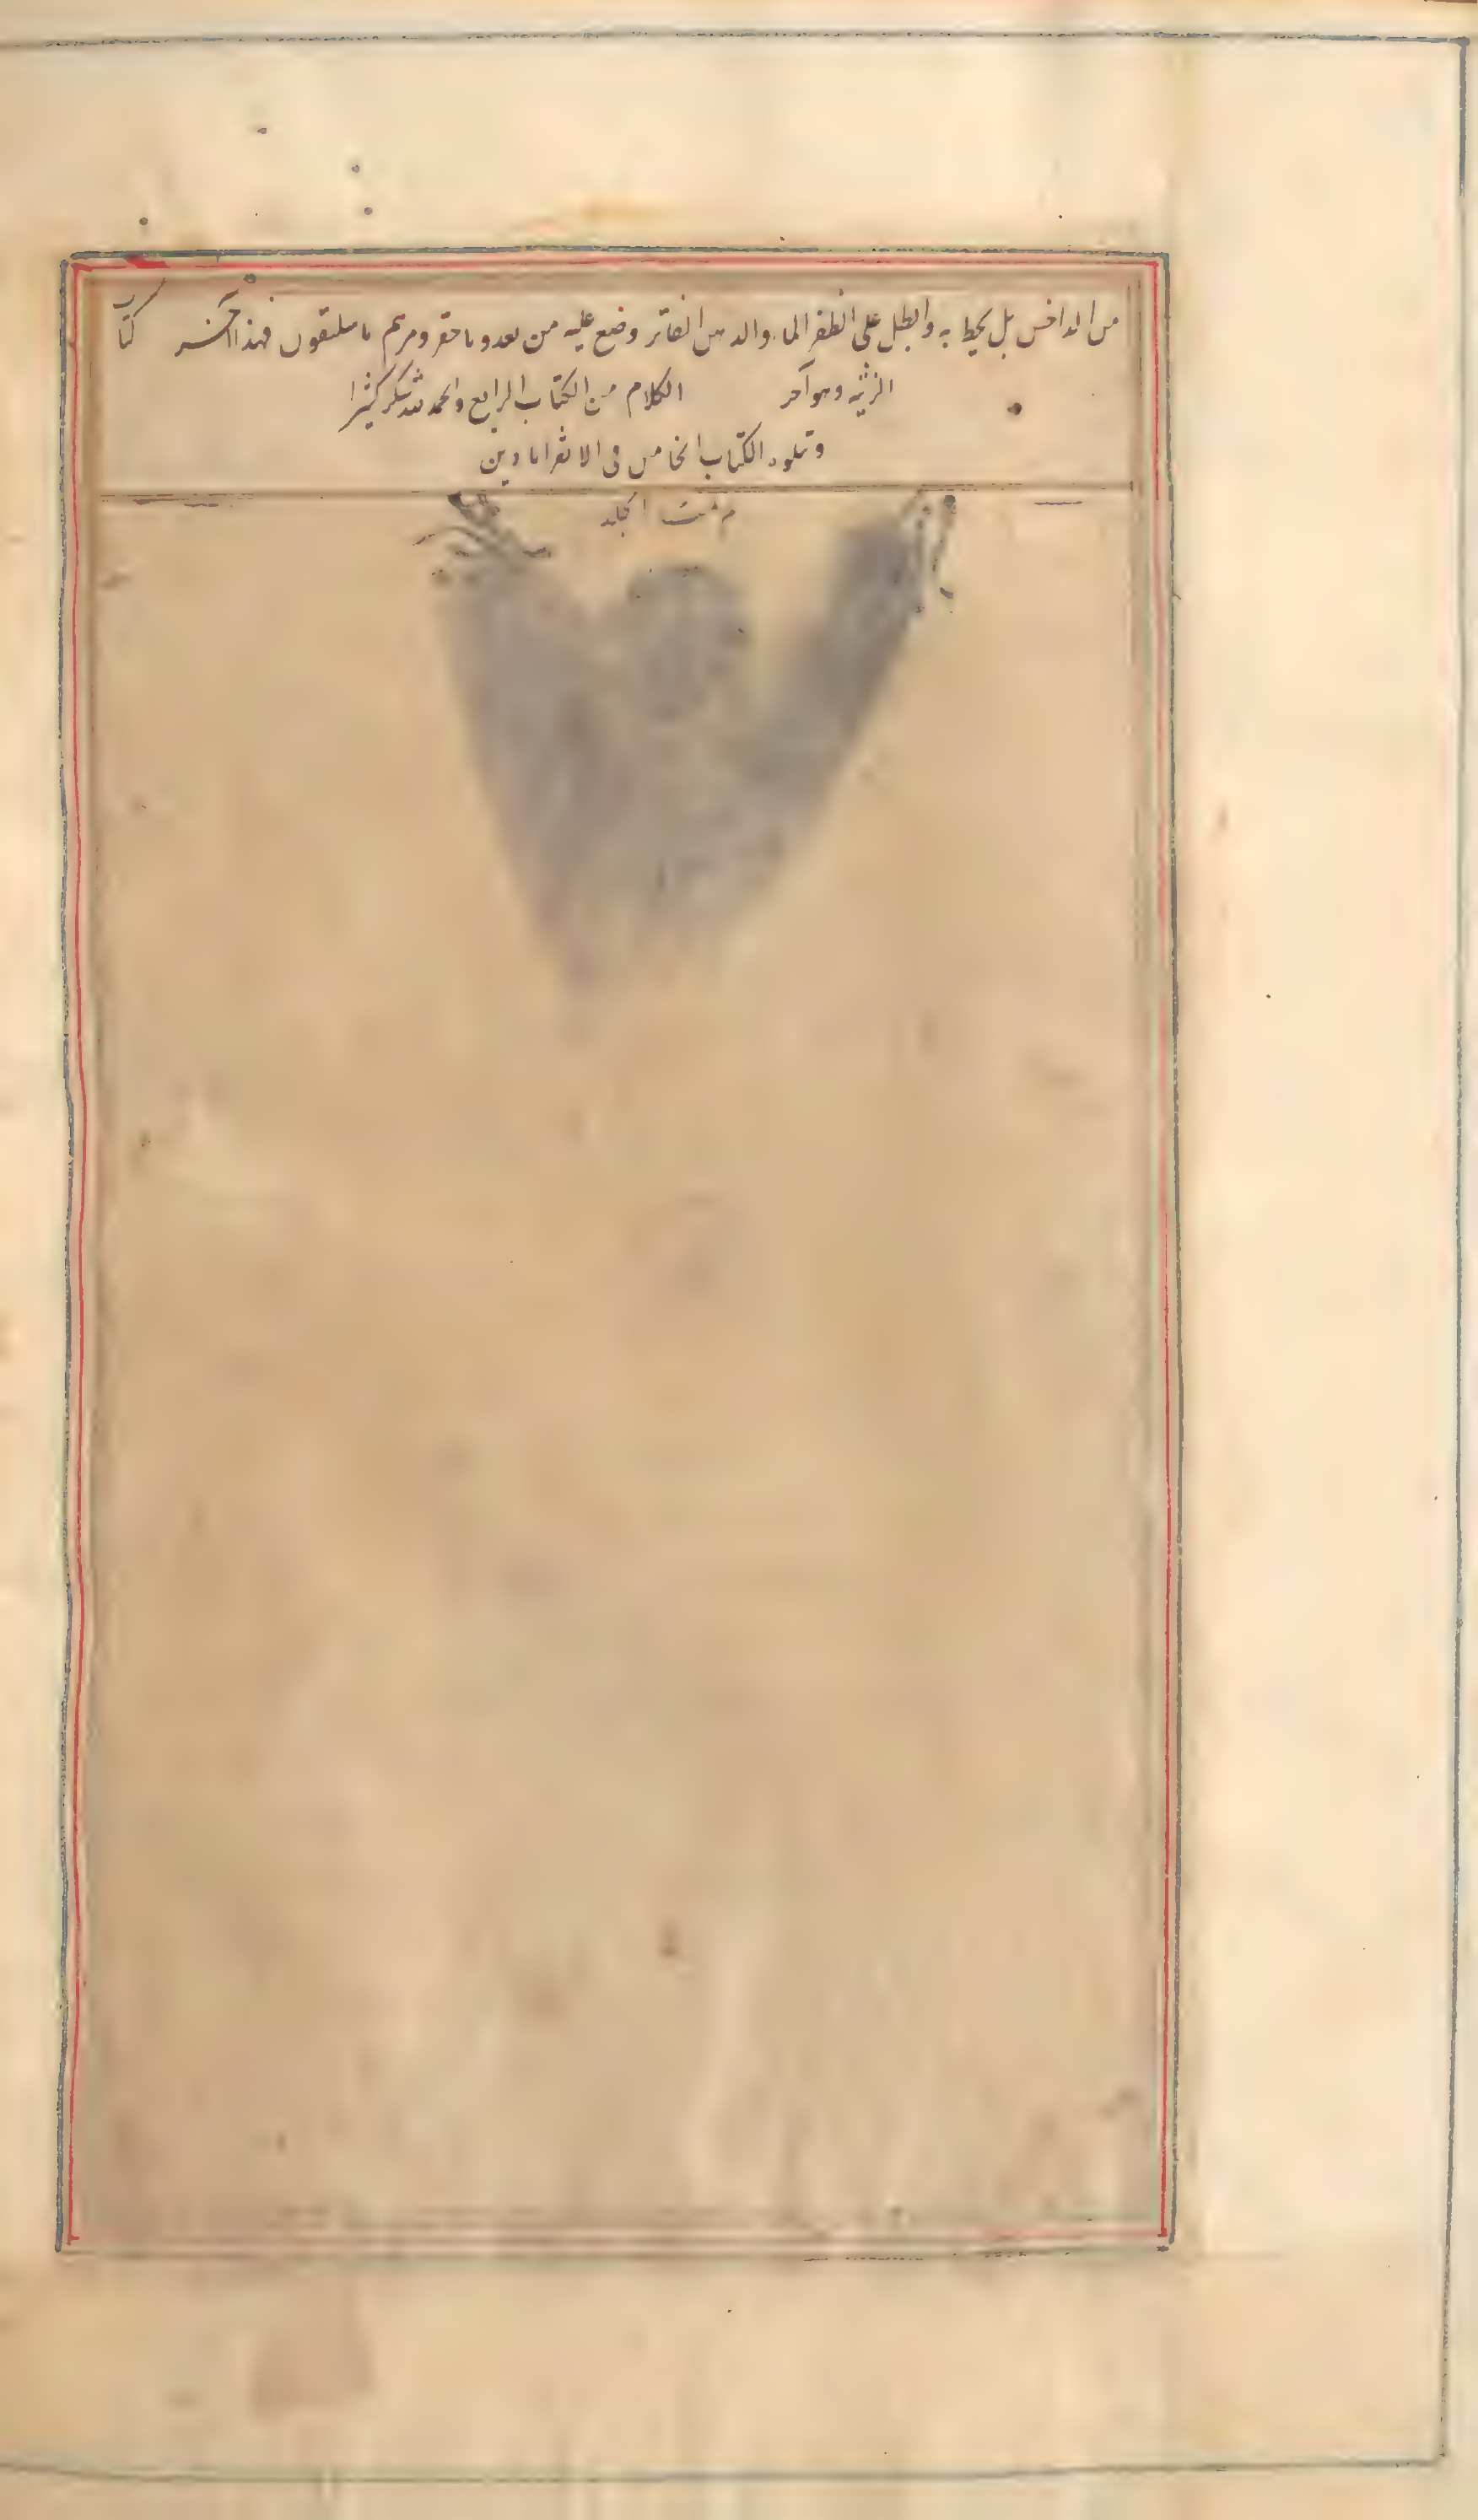 من الداخس بل يحيط به وابطل على الظفر الماء والدهن الفاتر وضع عليه من بعد وما حقر ومرهم باسليقون فهذا آخر كتاب
الزينه وهو آخر الكلام من الكتاب الرابع والحمد لله شكر كثيرا
وتيلوه الكتاب الخامس فى الاقراباذين